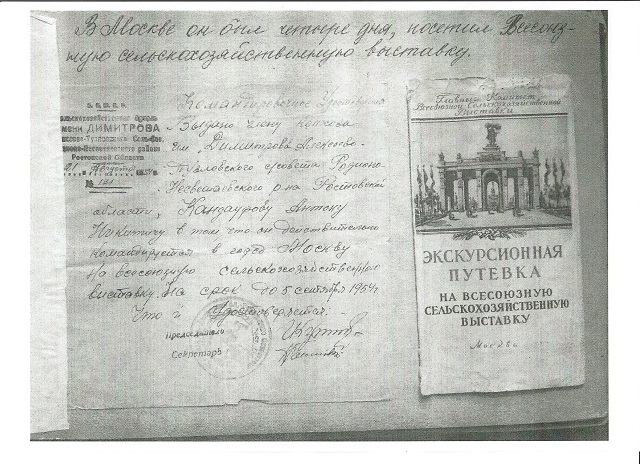 В Москве он был четыре дня, посетил Всесоюз-
ную сельскохозяйственную выставку.
Командировочное Удостоверение
Выдано члену колхоза
им. Димитрова Алексеево-
Тузловского с/совета Родионо-
Несветайского р-на Ростовской
области, Кандаурову Антону
Никитичу в том что он действительно
командируется в город Москву
На всесоюзную сельскохозяйственную
выставку. На срок до 5 сентября 1954 г.
Что и удостоверяется.
Председатель
Секретарь
ИМЕНИ ДИМИТРОВА
Ростовской Области
21 Августа
№ 121
Главный Комитет
Всесоюзной Сельскохозяйственной
Выставки
ЭКСКУРСИОННАЯ
ПУТЕВКА
НА ВСЕСОЮЗНУЮ
СЕЛЬСКОХОЗЯЙСТВЕННУЮ
ВЫСТАВКУ
Москва